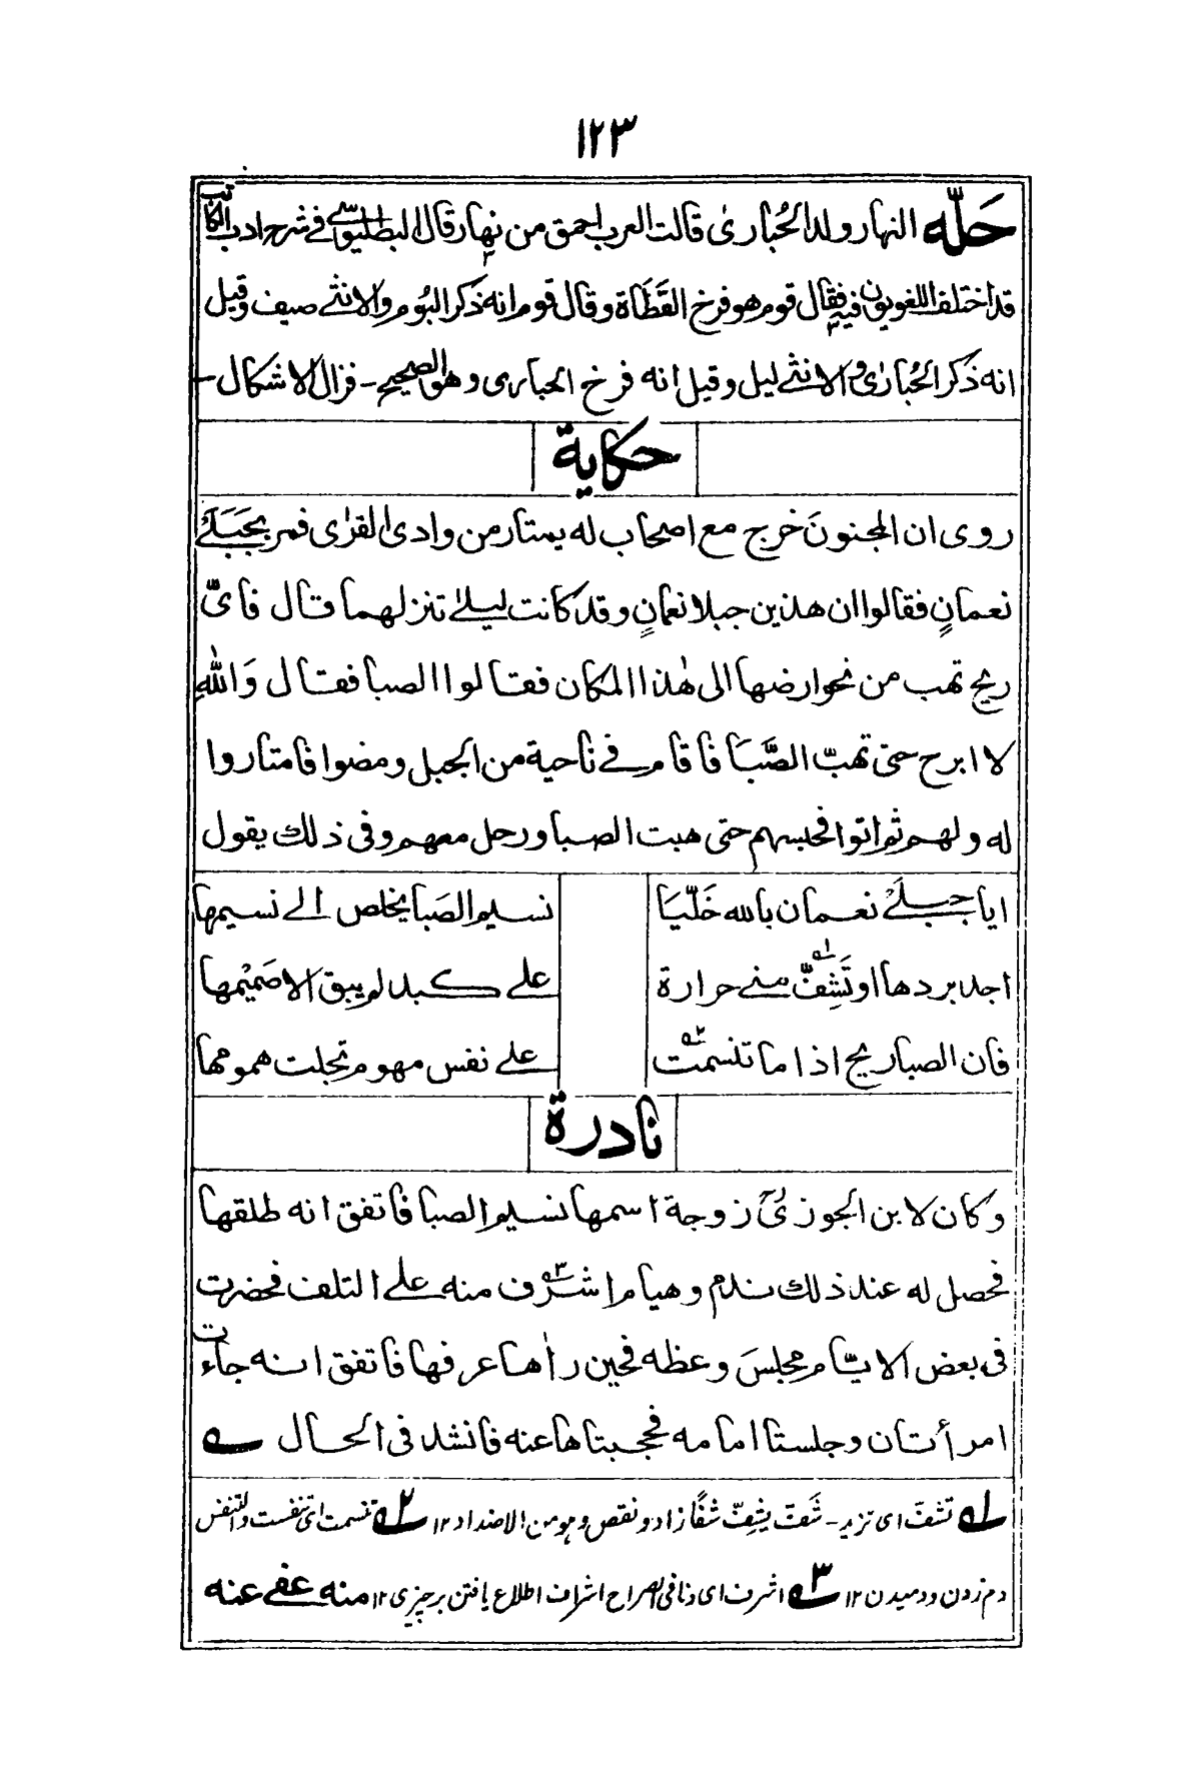 ١٢٣
حَلّه النهار ولد الحُبارىٰ قالت العرب احمق من نهار قال البطليوسّے فے شرح ادب الكاتب
قد اختلف اللغويون فيه فقال قوم هو فرخ القَطَاة وقال قوم انه ذكر البُوم والانثٰے صيف وقيل
انه ذكر الحُبارٰى والانثٰے ليل وقيل انه فرخ الحبارى وهو الصحيح - فزال الاشكال -
حكاية
روى ان المجنونَ خرج مع اصحاب له يمتار من وادى القرٰى فمر بجَبَلَے
نعمانٍ فقالوا ان هذين جبلا نعمانٍ وقد كانت ليلٰے تنزلهما قال فاىّ
ريح تهب من نحو ارضها الى هٰذا المكان فقالوا الصبا فقال وَاللهِ
لا ابرح حتى تهبّ الصَّبَا فاقام فے ناحية من الجبل ومضوا فامتاروا
له ولهم ثم اتوا فحبسهم حتى هبت الصبا ورحل معهم وفى ذلك يقول
ايا جبلَے نعمان بالله خَلّيَا نسيم الصَبا يخلص الے نسيمها
اجد بردها او تَشِفّ ١ منے حرارة علے كبد لم يبق الا صَمِيْمها
فان الصبا ريح اذا ما تنسمت ٢ علے نفس مهموم تجلت همومها
نادرة
وكان لابن الجوزىؒ زوجة اسمها نسيم الصبا فاتفق انه طلقها
فحصل له عند ذلك ندم وهيام اشرف ٣ منه علے التلف فحضرت
فى بعض الايّام مجلسَ وعظه فحين راٰها عرفها فاتفق انه جاءت
امرأتان وجلستا امامه فحجبتاها عنه فانشد فى الحال ے
١ تشفّ اى تزيد - شَفّ يشِفّ شفًّا زاد ونقص وهو من الاضداد ١٢ ٢ تنسمت اى تنفست والتنفس
دم زدن ودميدن ١٢ ٣ اشرف اى دنا فى الصراح اشراف اطلاع يافتن بر چيزى ١٢ منه عفے عنه